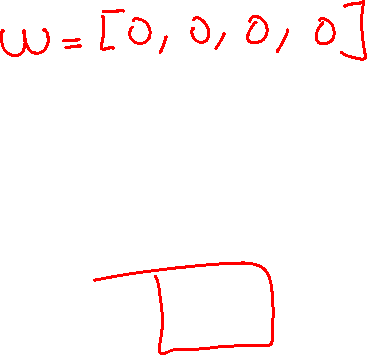 w = [0, 0, 0, 0]